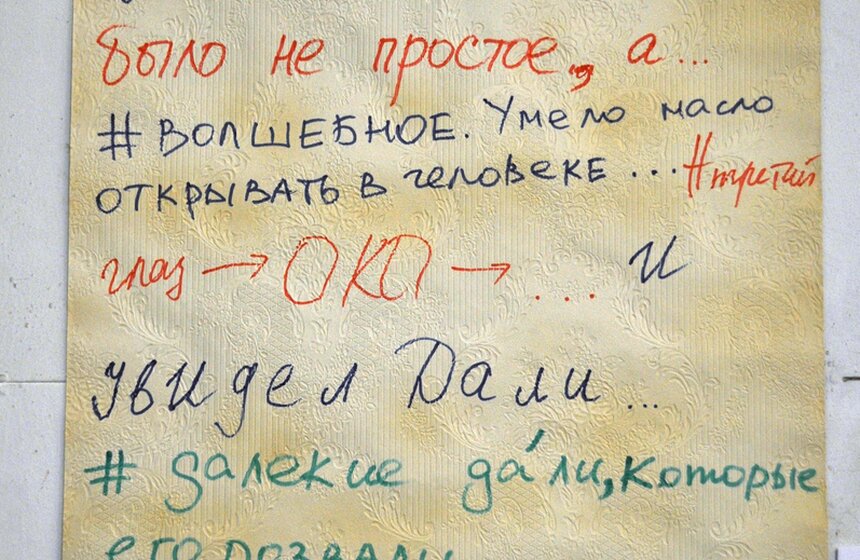 было не простое, а...
# ВОЛШЕБНОЕ. Умело масло
ОТКРЫВАТЬ В ЧЕЛОВЕКЕ ... #третий
глаз → ОКО → ... и
увидел Дали...
# далекие да́ли, которые
его позвали